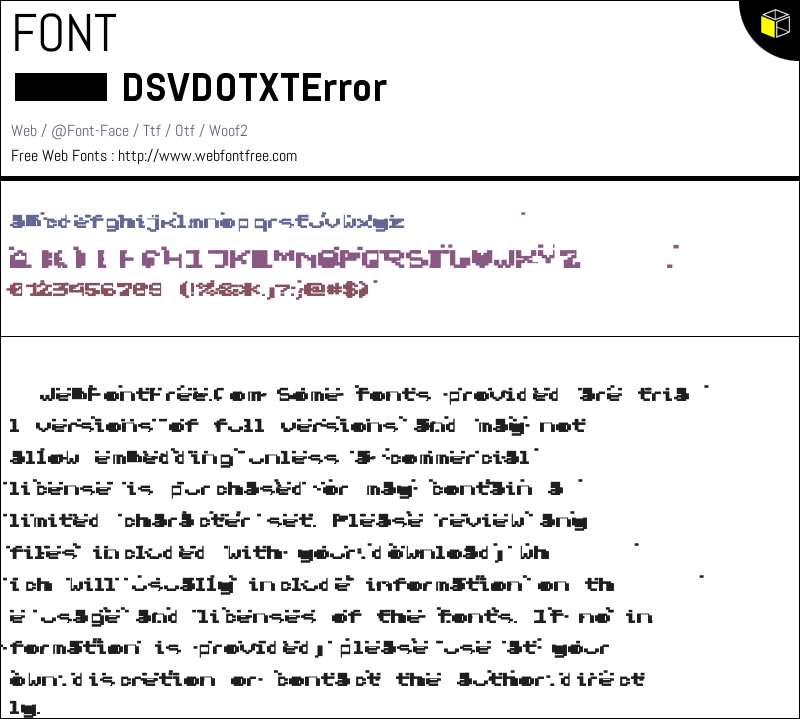 FONT
DSVDOTXTError
Web / @Font-Face / Ttf / Otf / Woof2
Free Web Fonts : http://www.webfontfree.com
abcdefghijklmnopqrstuvwxyz
ABCDEFGHIJKLMNOPQRSTUVWXYZ
0123456789 (!%&@*.,?:;@#$)
WebFontFree.Com Some fonts provided are tria
l versions of full versions and may not
allow embedding unless a commercial
license is purchased or may contain a
limited character set. Please review any
files included with your download, wh
ich will usually include information on th
e usage and licenses of the fonts. If no in
formation is provided, please use at your
own discretion or contact the author direct
ly.